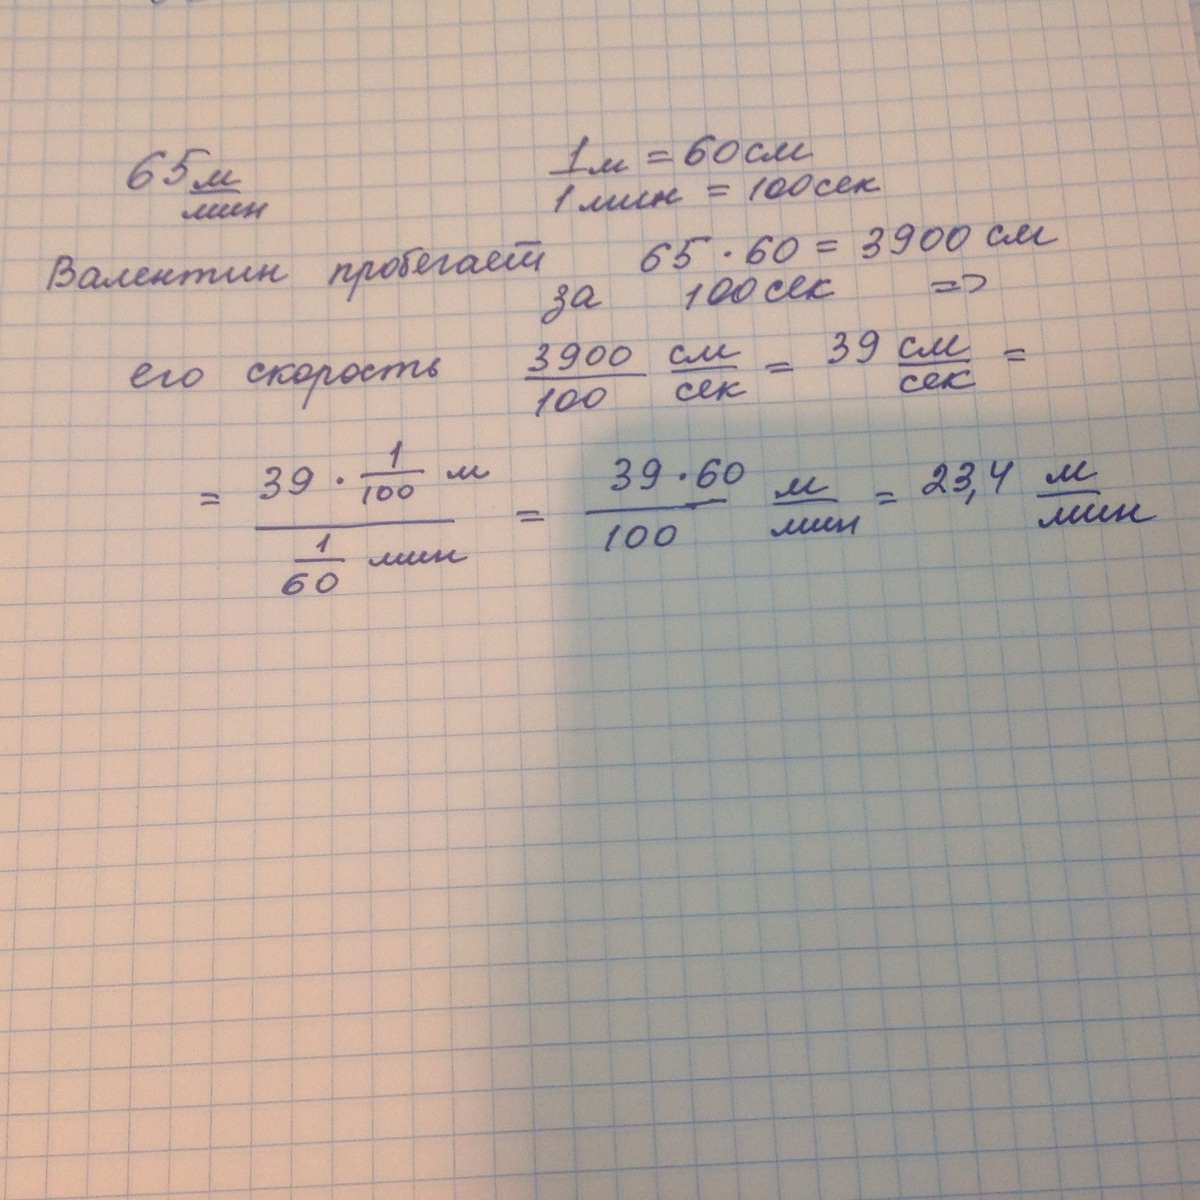 65 м/мин
1м = 60см
1 мин = 100сек
Валентин пробегает 65 · 60 = 3900 см
за 100сек =>
его скорость 3900/100 см/сек = 39 см/сек =
= (39 · 1/100 м)/(1/60 мин) = (39 · 60)/100 м/мин = 23,4 м/мин